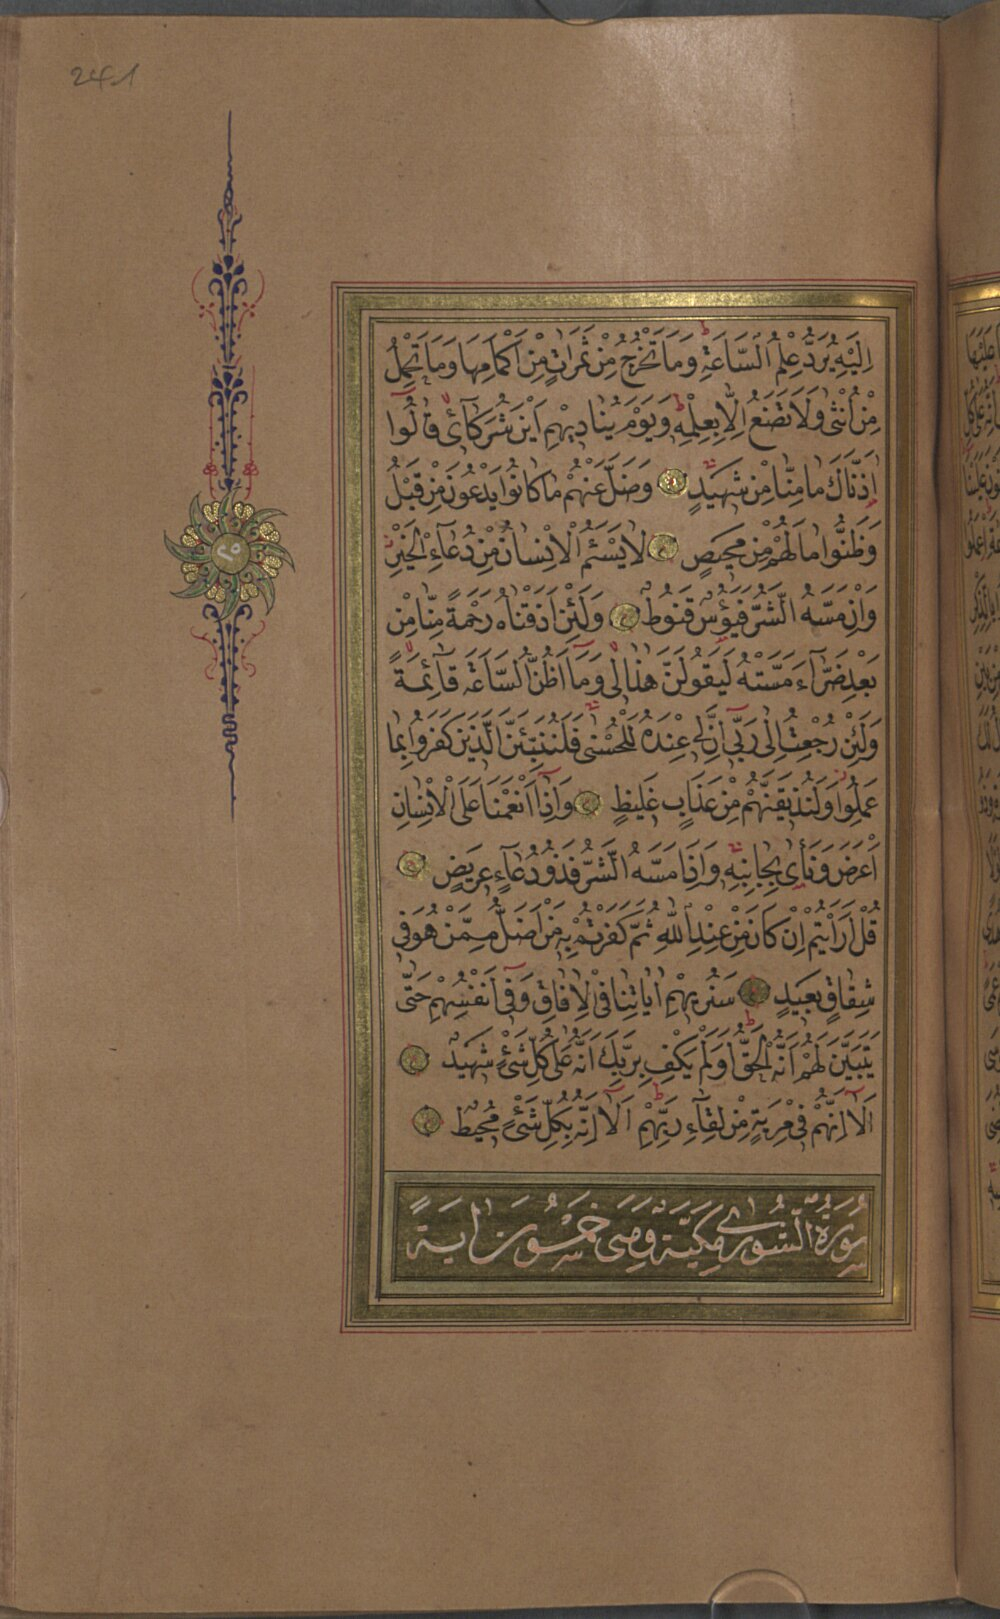 241
اِلَيْهِ يُرَدُّ عِلْمُ السَّاعَةِ وَمَا تَخْرُجُ مِنْ ثَمَرَاتٍ مِنْ اَكْمَامِهَا وَمَا تَحْمِلُ
مِنْ اُنْثٰى وَلَا تَضَعُ اِلَّا بِعِلْمِهِ وَيَوْمَ يُنَادِيهِمْ اَيْنَ شُرَكَآئِ قَالُوا
اٰذَنَّاكَ مَا مِنَّا مِنْ شَهِيدٍ وَضَلَّ عَنْهُمْ مَا كَانُوا يَدْعُونَ مِنْ قَبْلُ
وَظَنُّوا مَا لَهُمْ مِنْ مَحِيصٍ لَا يَسْئَمُ الْاِنْسَانُ مِنْ دُعَآءِ الْخَيْرِ
وَاِنْ مَسَّهُ الشَّرُّ فَيَؤُسٌ قَنُوطٌ وَلَئِنْ اَذَقْنَاهُ رَحْمَةً مِنَّا مِنْ
بَعْدِ ضَرَّآءَ مَسَّتْهُ لَيَقُولَنَّ هٰذَا لِى وَمَآ اَظُنُّ السَّاعَةَ قَآئِمَةً
وَلَئِنْ رُجِعْتُ اِلٰى رَبِّى اِنَّ لِى عِنْدَهُ لَلْحُسْنٰى فَلَنُنَبِّئَنَّ الَّذِينَ كَفَرُوا بِمَا
عَمِلُوا وَلَنُذِيقَنَّهُمْ مِنْ عَذَابٍ غَلِيظٍ وَاِذَآ اَنْعَمْنَا عَلَى الْاِنْسَانِ
اَعْرَضَ وَنَاٰى بِجَانِبِهِ وَاِذَا مَسَّهُ الشَّرُّ فَذُو دُعَآءٍ عَرِيضٍ
قُلْ اَرَاَيْتُمْ اِنْ كَانَ مِنْ عِنْدِ اللّٰهِ ثُمَّ كَفَرْتُمْ بِهِ مَنْ اَضَلُّ مِمَّنْ هُوَ فِى
شِقَاقٍ بَعِيدٍ سَنُرِيهِمْ اٰيَاتِنَا فِى الْاٰفَاقِ وَفِٓى اَنْفُسِهِمْ حَتّٰى
يَتَبَيَّنَ لَهُمْ اَنَّهُ الْحَقُّ اَوَلَمْ يَكْفِ بِرَبِّكَ اَنَّهُ عَلٰى كُلِّ شَىْءٍ شَهِيدٌ
اَلَآ اِنَّهُمْ فِى مِرْيَةٍ مِنْ لِقَآءِ رَبِّهِمْ اَلَآ اِنَّهُ بِكُلِّ شَىْءٍ مُحِيطٌ
سُورَةُ الشُّورٰى مَكِّيَّةٌ وَهِىَ خَمْسُونَ اٰيَةً